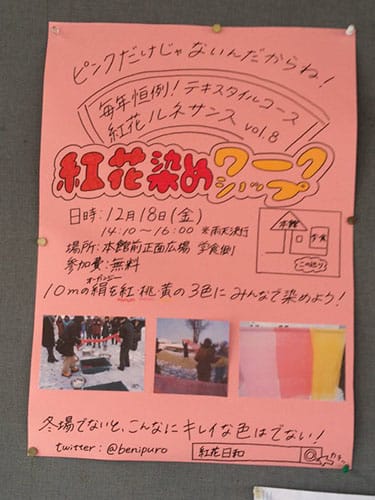 ピンクだけじゃないんだからね!
毎年恒例! テキスタイルコース
紅花ルネサンス vol.8
紅花染めワークショップ
日時:12月18日(金)
14:10~16:00 ※雨天決行
場所:本館前正面広場 学食側
参加費:無料
本館
学食
この辺り
オーガンジー
10mの絹を紅・桃・黄の3色にみんなで染めよう!
冬場でないと、こんなにキレイな色はでない!
twitter:@benipuro
紅花日和